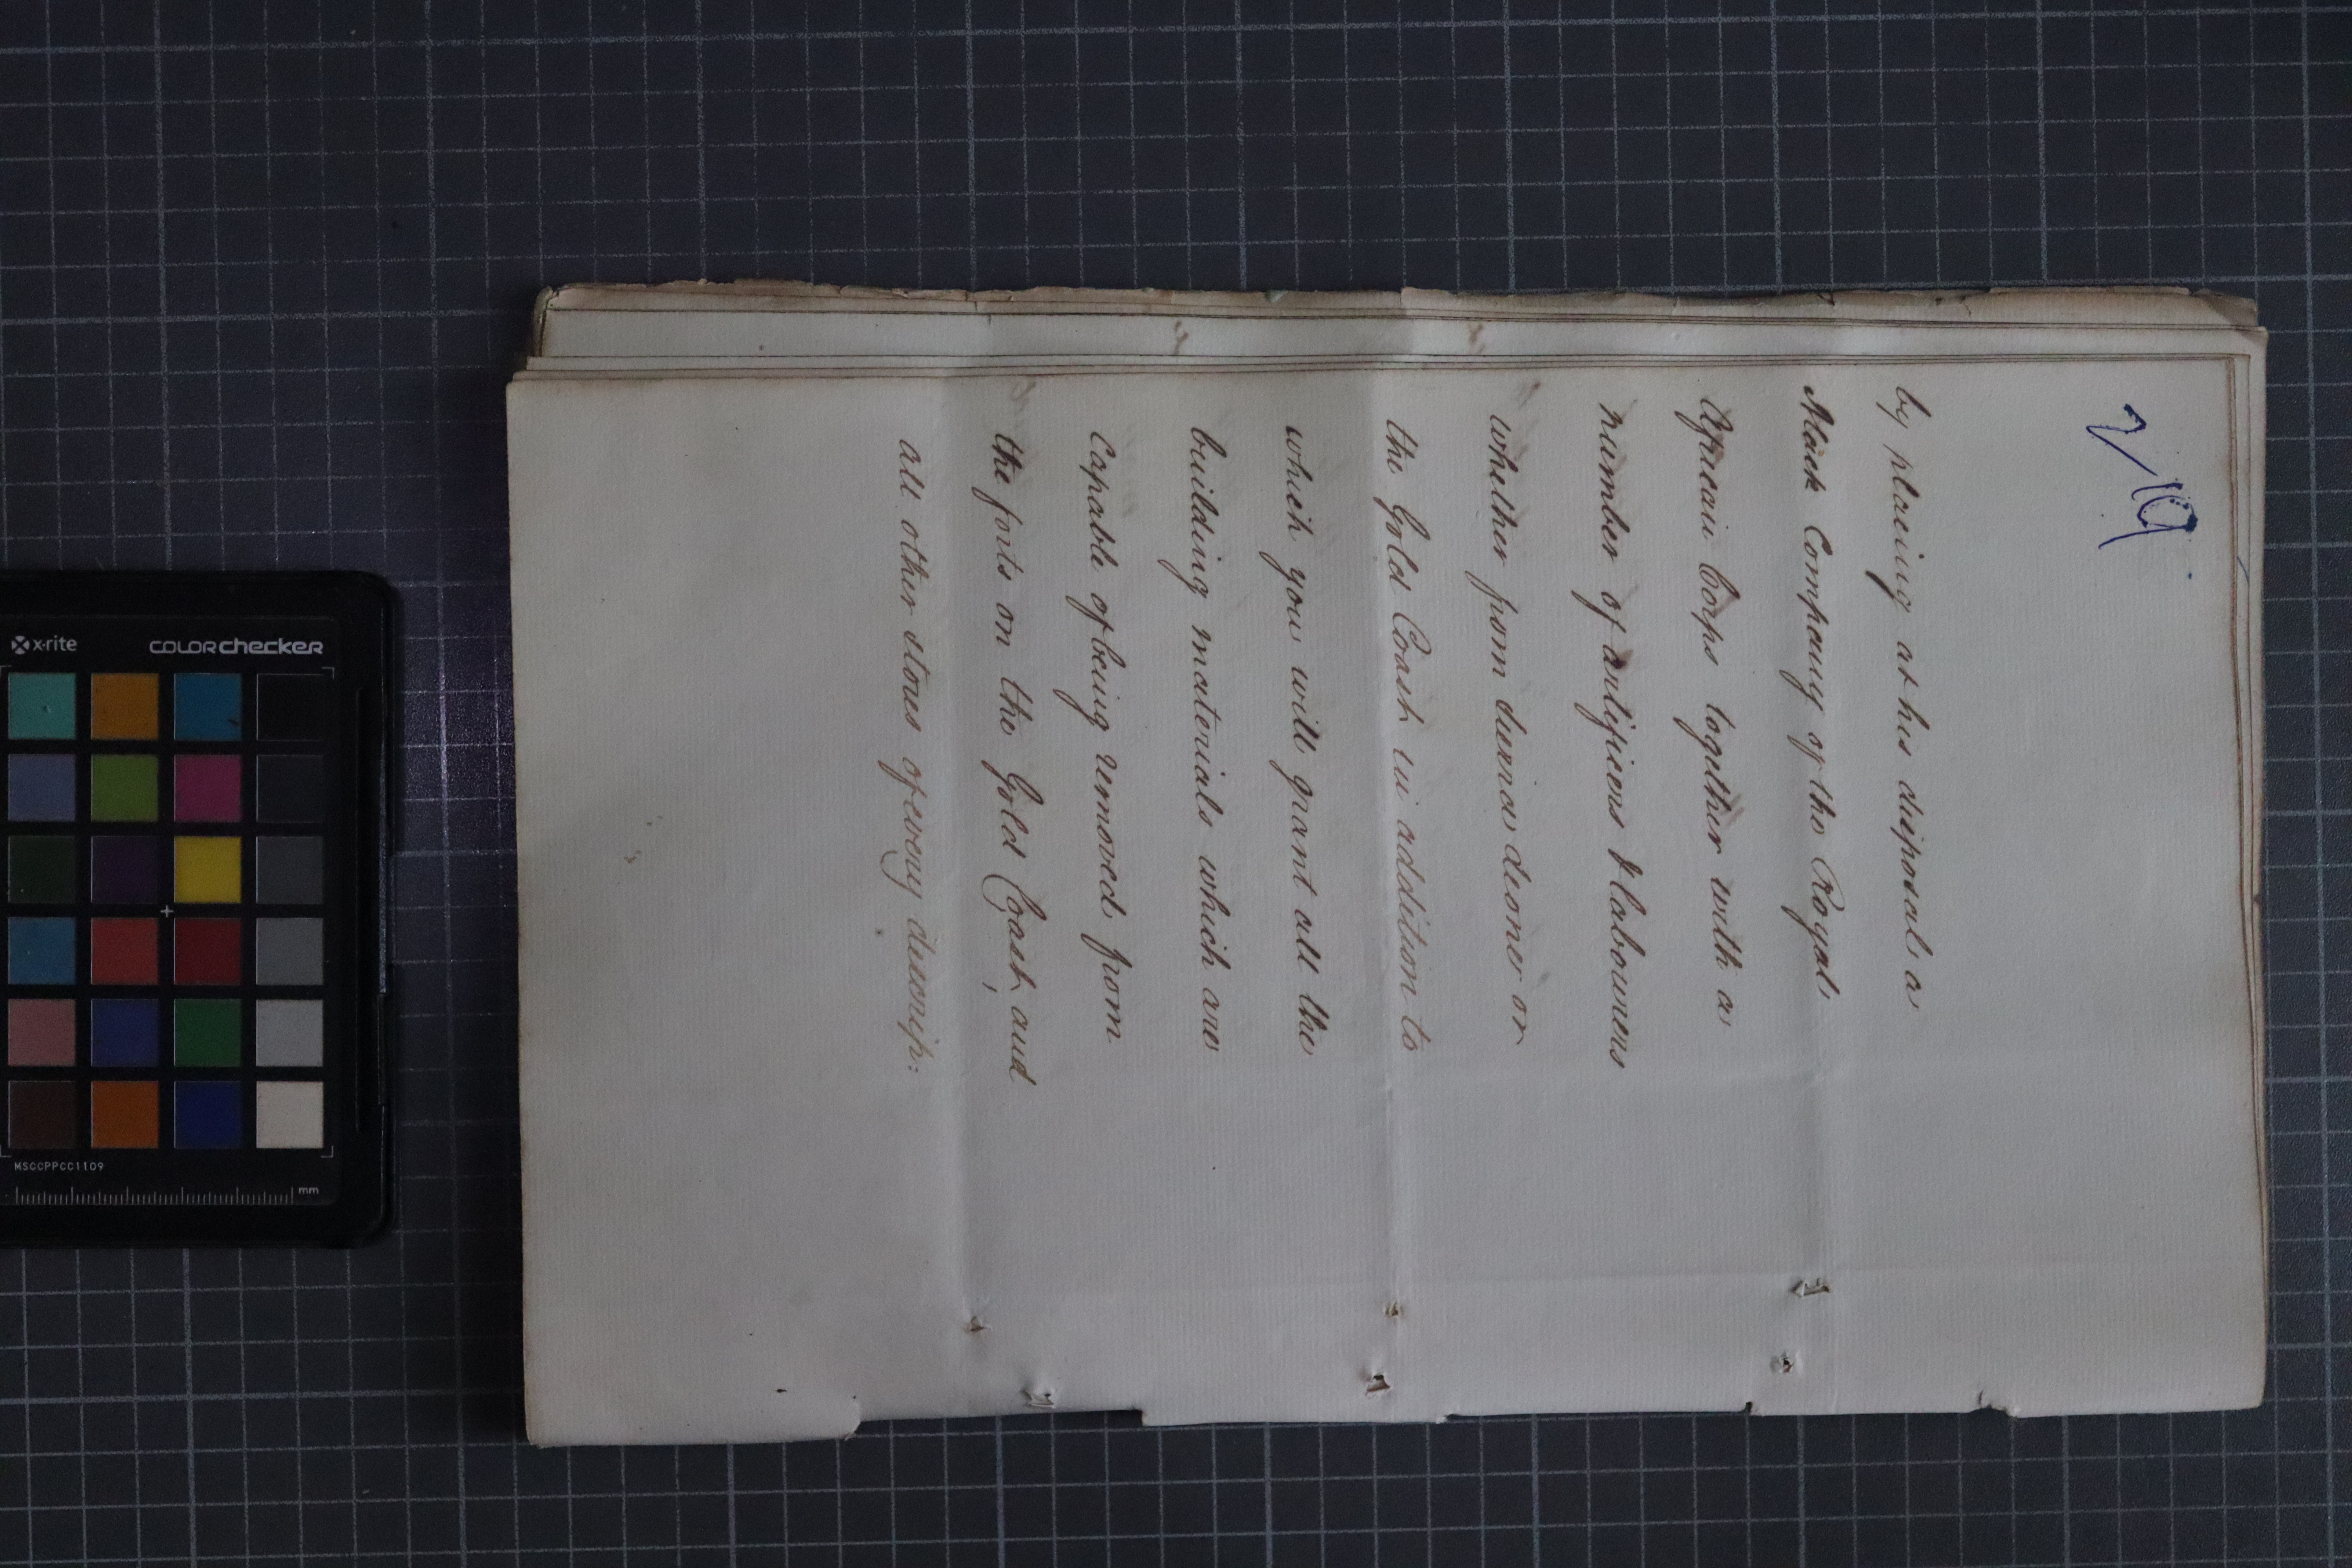 2/19
by placing at his disposal a
Black Company of the Royal
African Corps together with a
number of artificers & labourers
whether from Sierra Leone or
the Gold Coast in addition to
which you will grant all the
building materials which are
capable of being removed from
the forts on the Gold Coast, and
all other stores of every descrip:
x·rite
COLORchecker
MSCCPPCC1109
mm